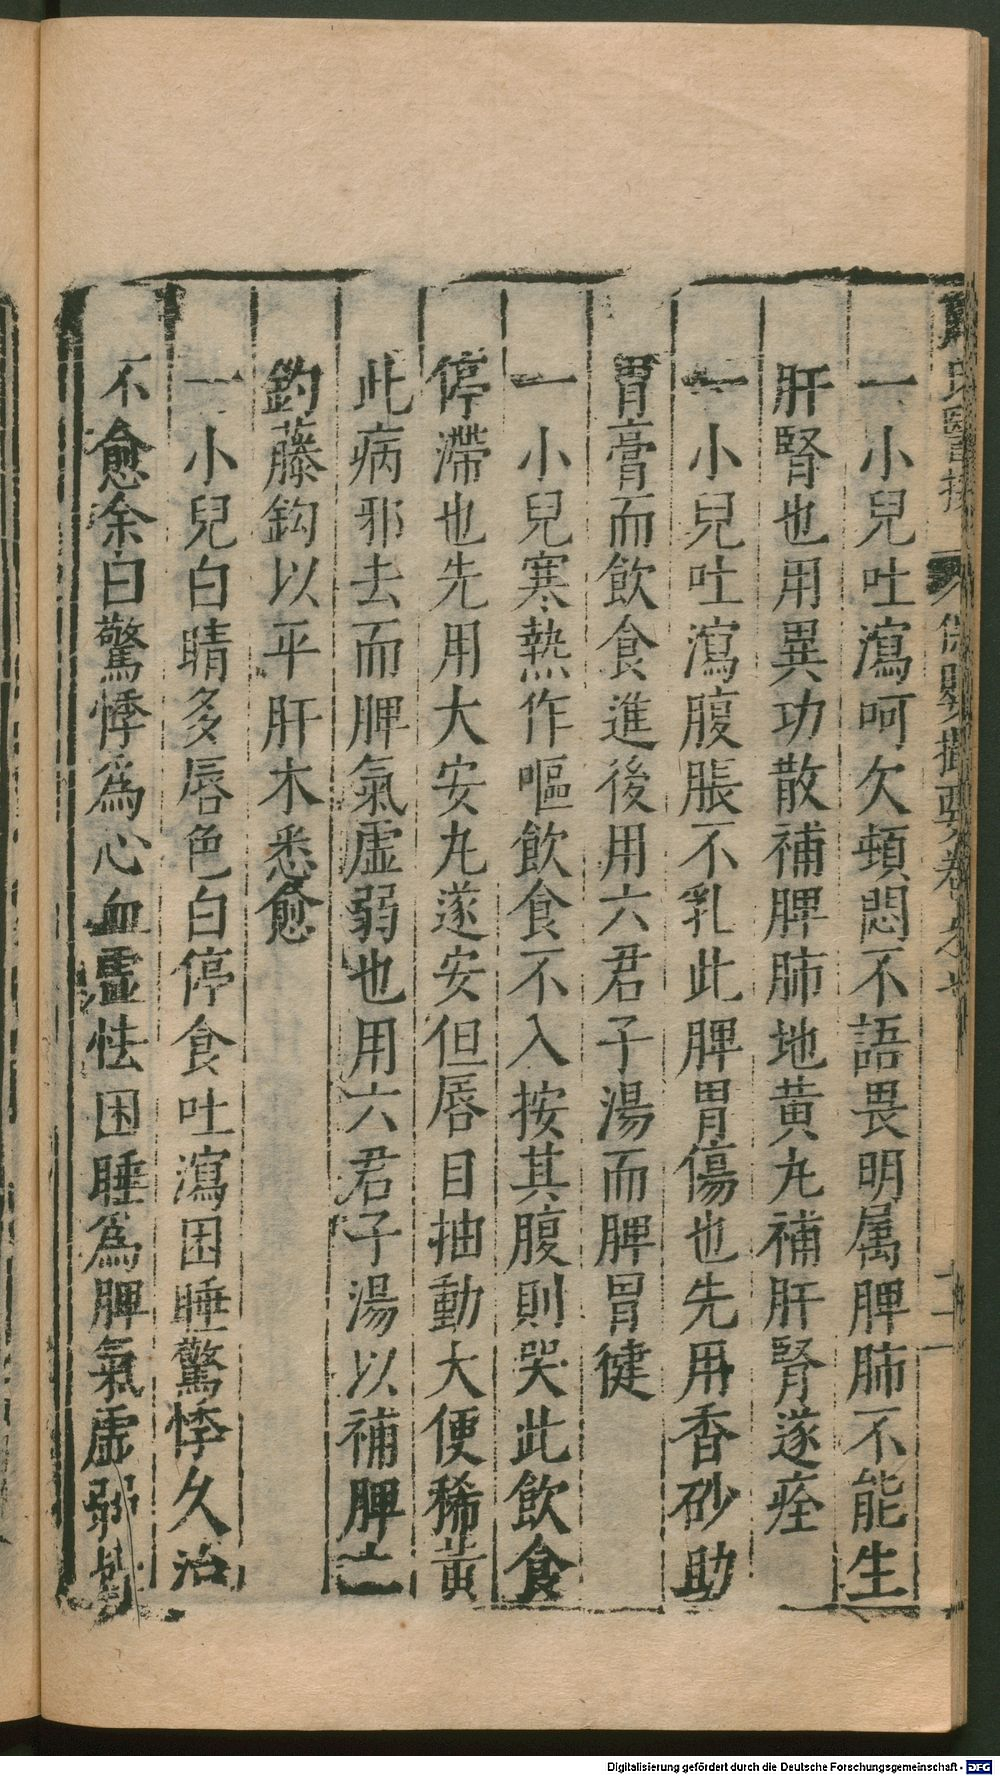 氏醫按 保嬰撮要卷之七 十一
一小兒吐瀉呵欠頓悶不語畏明属脾肺不能生
肝腎也用異功散補脾肺地黄丸補肝腎遂痊
一小兒吐瀉腹脹不乳此脾胃傷也先用香砂助
胃膏而飲食進後用六君子湯而脾胃徤
一小兒寒熱作嘔飲食不入按其腹則哭此飲食
停滯也先用大安丸遂安但唇目抽動大便稀黄
此病邪去而脾氣虛弱也用六君子湯以補脾土
釣藤鈎以平肝木悉愈
一小兒白睛多唇色白停食吐瀉困睡驚悸久治
不愈余曰驚悸為心血虛怯困睡為脾氣虛弱
Digitalisierung gefördert durch die Deutsche Forschungsgemeinschaft - DFG